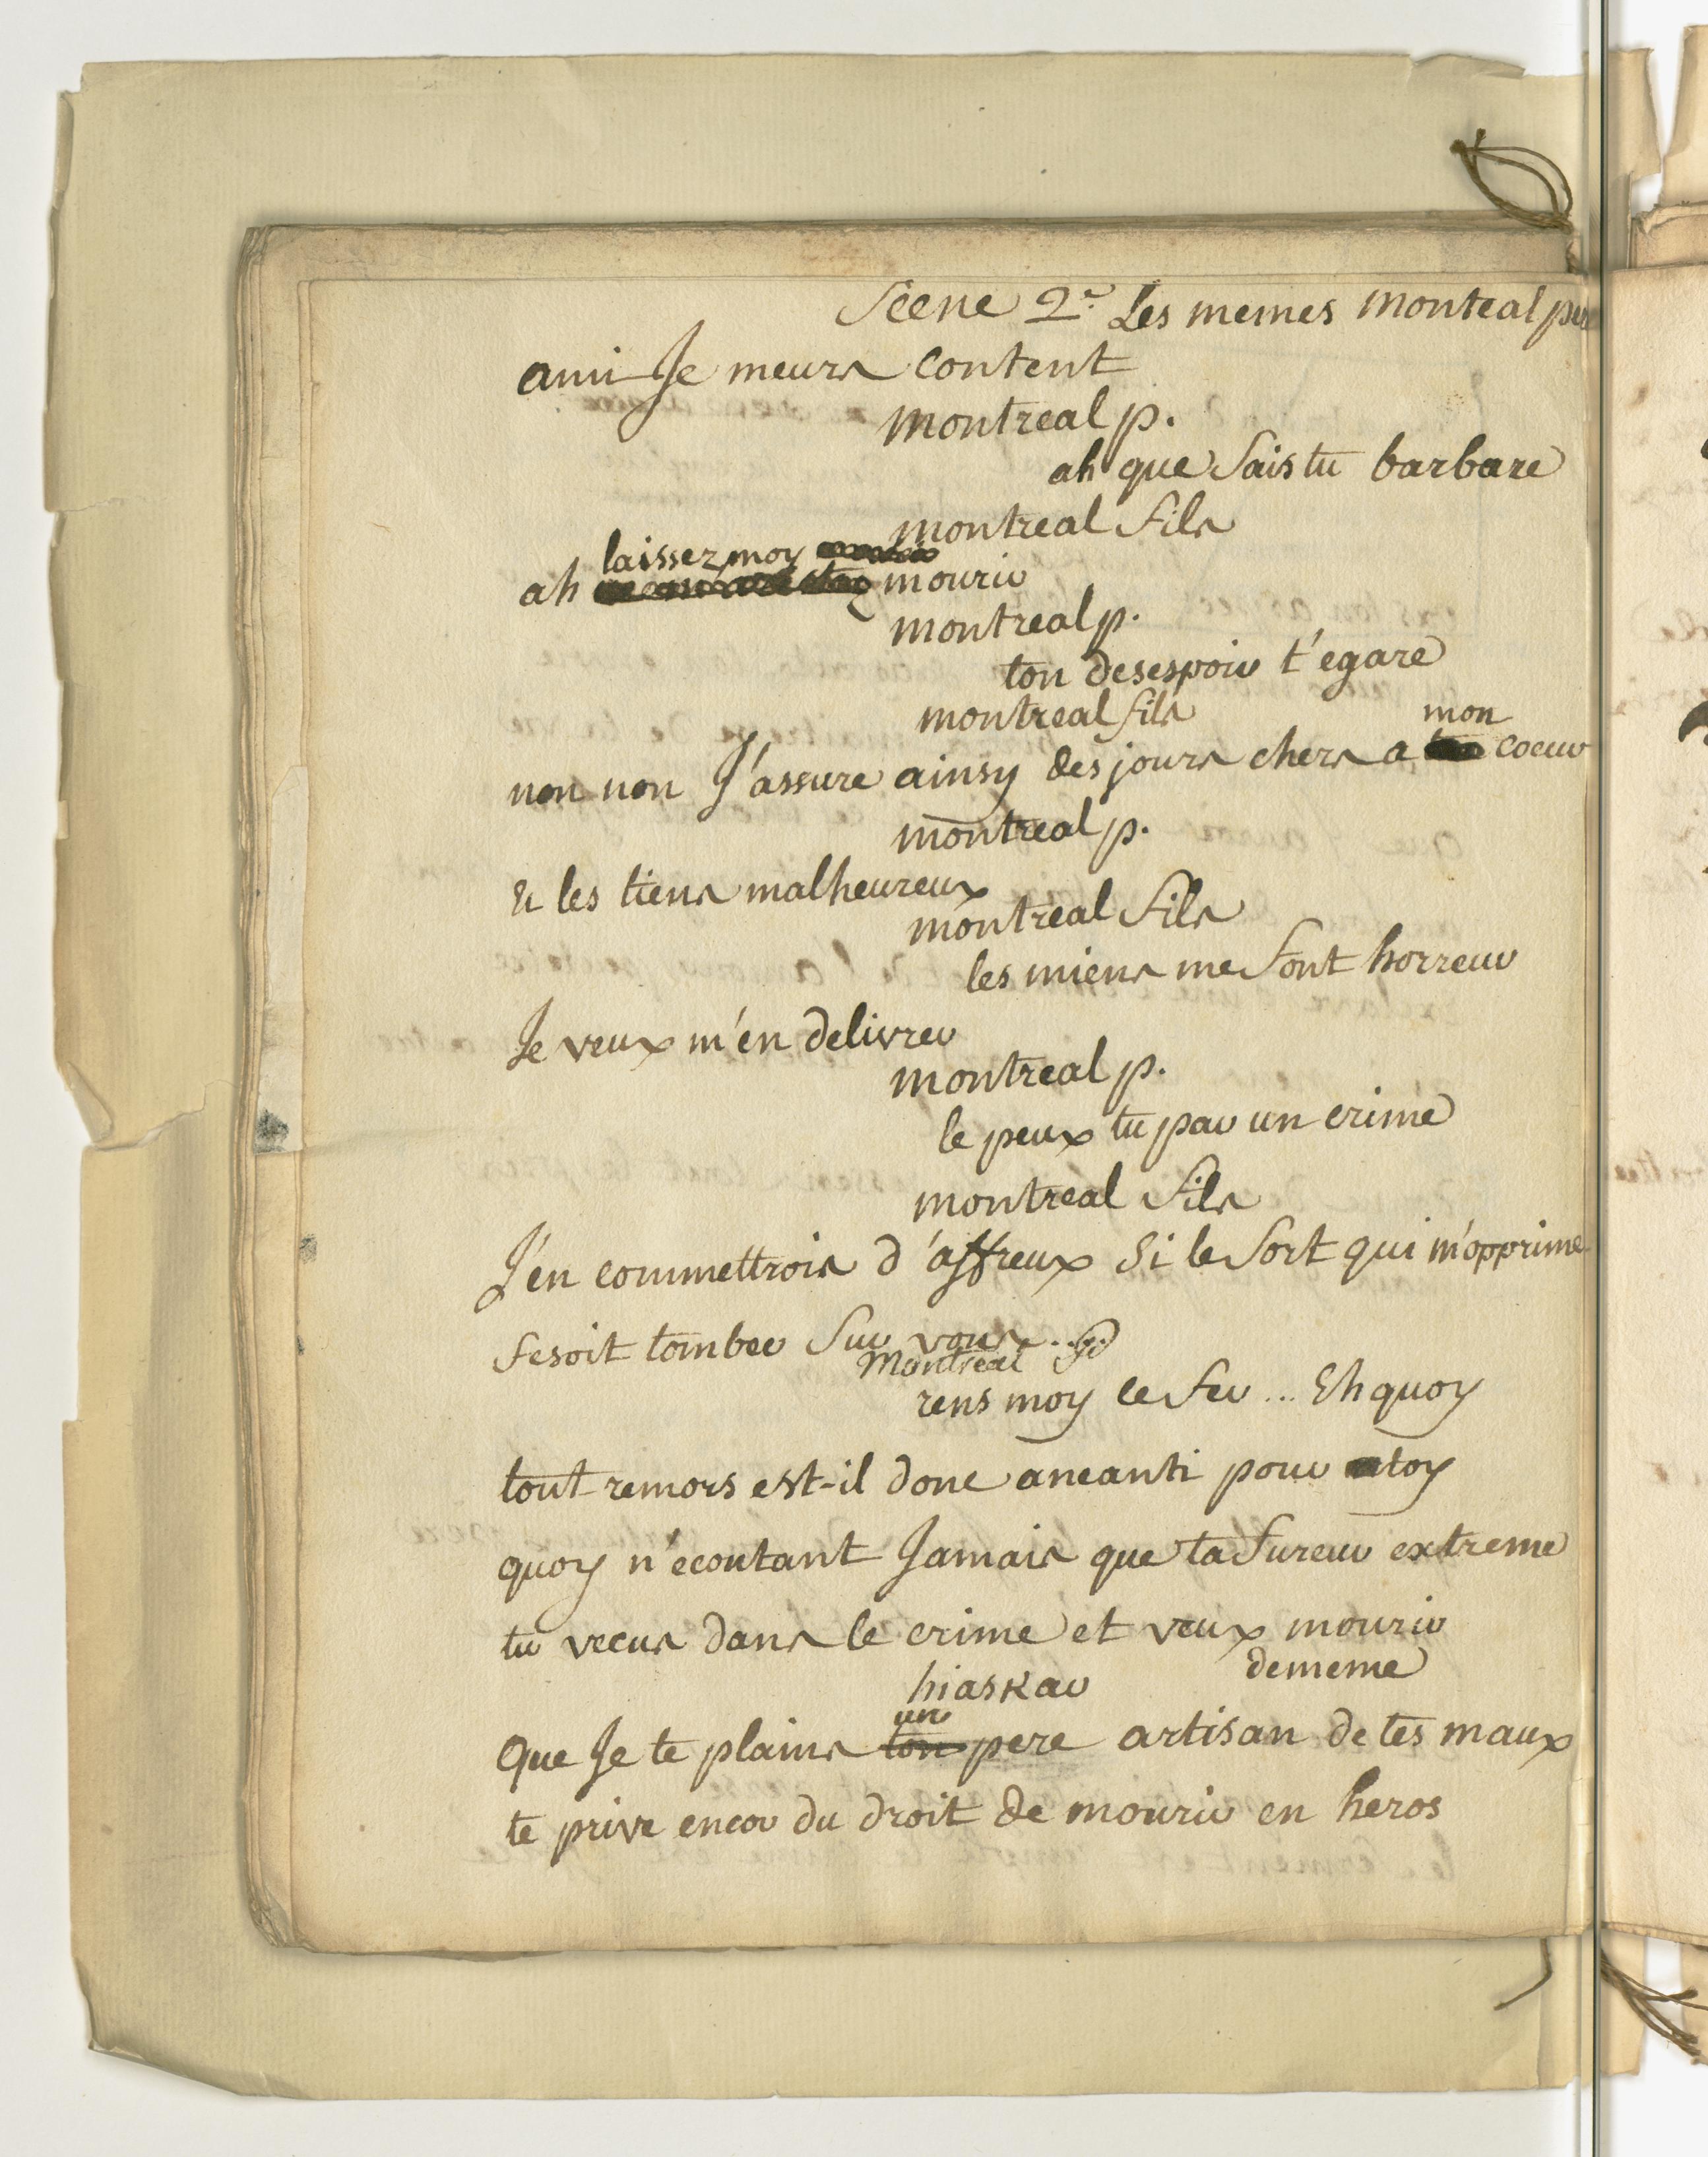 Scene 2e. Les memes Montreal pere
ami Je meurs content
montreal p.
ah que fais tu barbare
montreal fils
laissez moy
ah mourir
montreal p.
ton desespoir t'egare
montreal fils
mon
non non J'assure ainsy des jours chers a coeur
montreal p.
Et les tiens malheureux
montreal fils
les miens me font horreur
Je veux m'en delivrer
montreal p.
le peux tu par un crime
montreal fils
J'en commettrois d'affreux Si le Sort qui m'opprime
fesoit tomber Sur vous...
Montreal p
rens moy ce fer... Eh quoy
tout remors est-il donc aneanti pour toy
quoy n'ecoutant Jamais que ta fureur extreme
tu vecus dans le crime et veux mourir
de meme
hiaskar
un
Que Je te plains ton pere artisan de tes maux
te prive encor du droit de mourir en heros